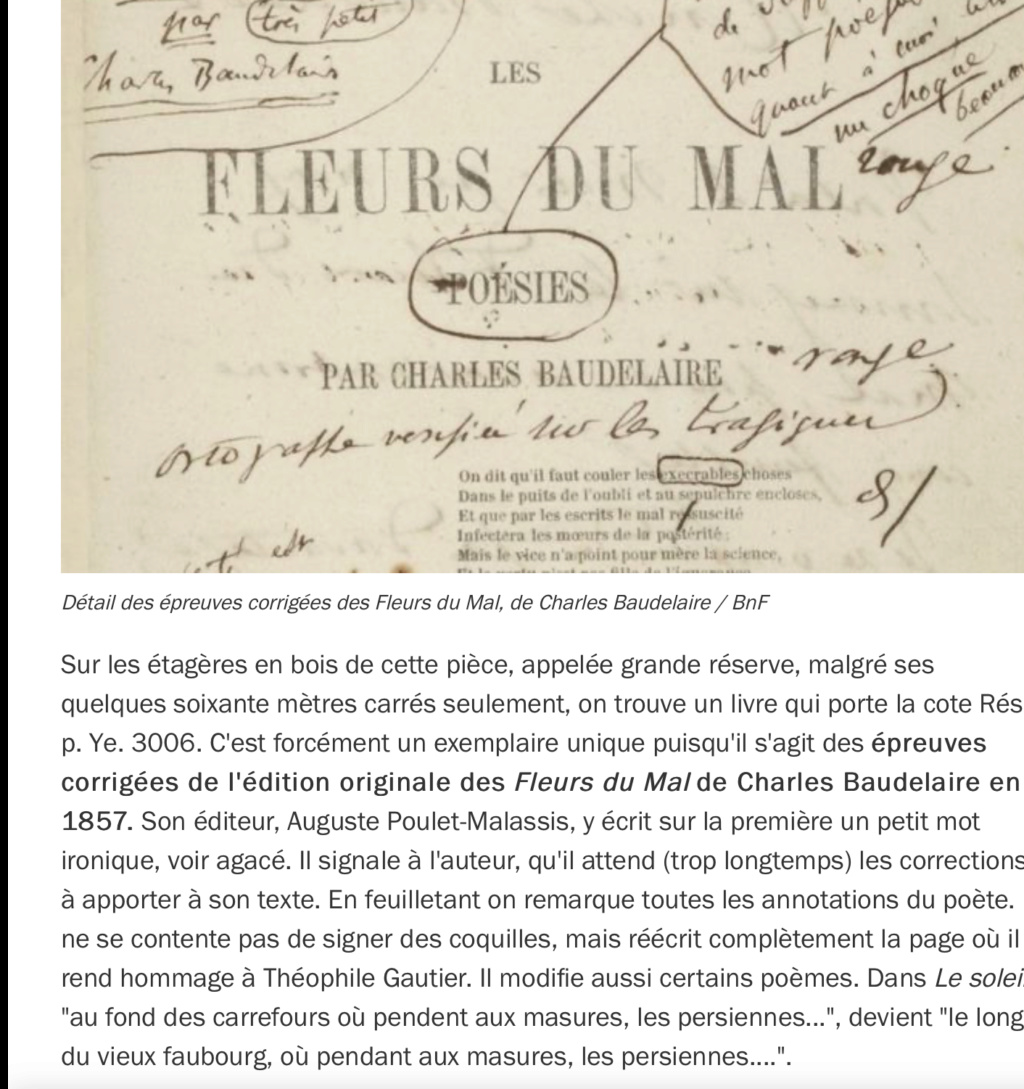 par très petit
Charles Baudelaire
de
mot
quant à moi
me choque
beaucoup
LES
FLEURS DU MAL
rouge
POÉSIES
rouge
PAR CHARLES BAUDELAIRE
ortographe verifiée sur les tragiques
On dit qu'il faut couler les execrables choses
Dans le puits de l'oubli et au sepulchre encloses,
Et que par les escrits le mal resuscité
Infectera les mœurs de la postérité;
Mais le vice n'a point pour mère la science,
Détail des épreuves corrigées des Fleurs du Mal, de Charles Baudelaire / BnF
Sur les étagères en bois de cette pièce, appelée grande réserve, malgré ses
quelques soixante mètres carrés seulement, on trouve un livre qui porte la cote Rés
p. Ye. 3006. C'est forcément un exemplaire unique puisqu'il s'agit des épreuves
corrigées de l'édition originale des Fleurs du Mal de Charles Baudelaire en
1857. Son éditeur, Auguste Poulet-Malassis, y écrit sur la première un petit mot
ironique, voir agacé. Il signale à l'auteur, qu'il attend (trop longtemps) les corrections
à apporter à son texte. En feuilletant on remarque toutes les annotations du poète.
ne se contente pas de signer des coquilles, mais réécrit complètement la page où il
rend hommage à Théophile Gautier. Il modifie aussi certains poèmes. Dans Le solei
"au fond des carrefours où pendent aux masures, les persiennes...", devient "le long
du vieux faubourg, où pendant aux masures, les persiennes....".